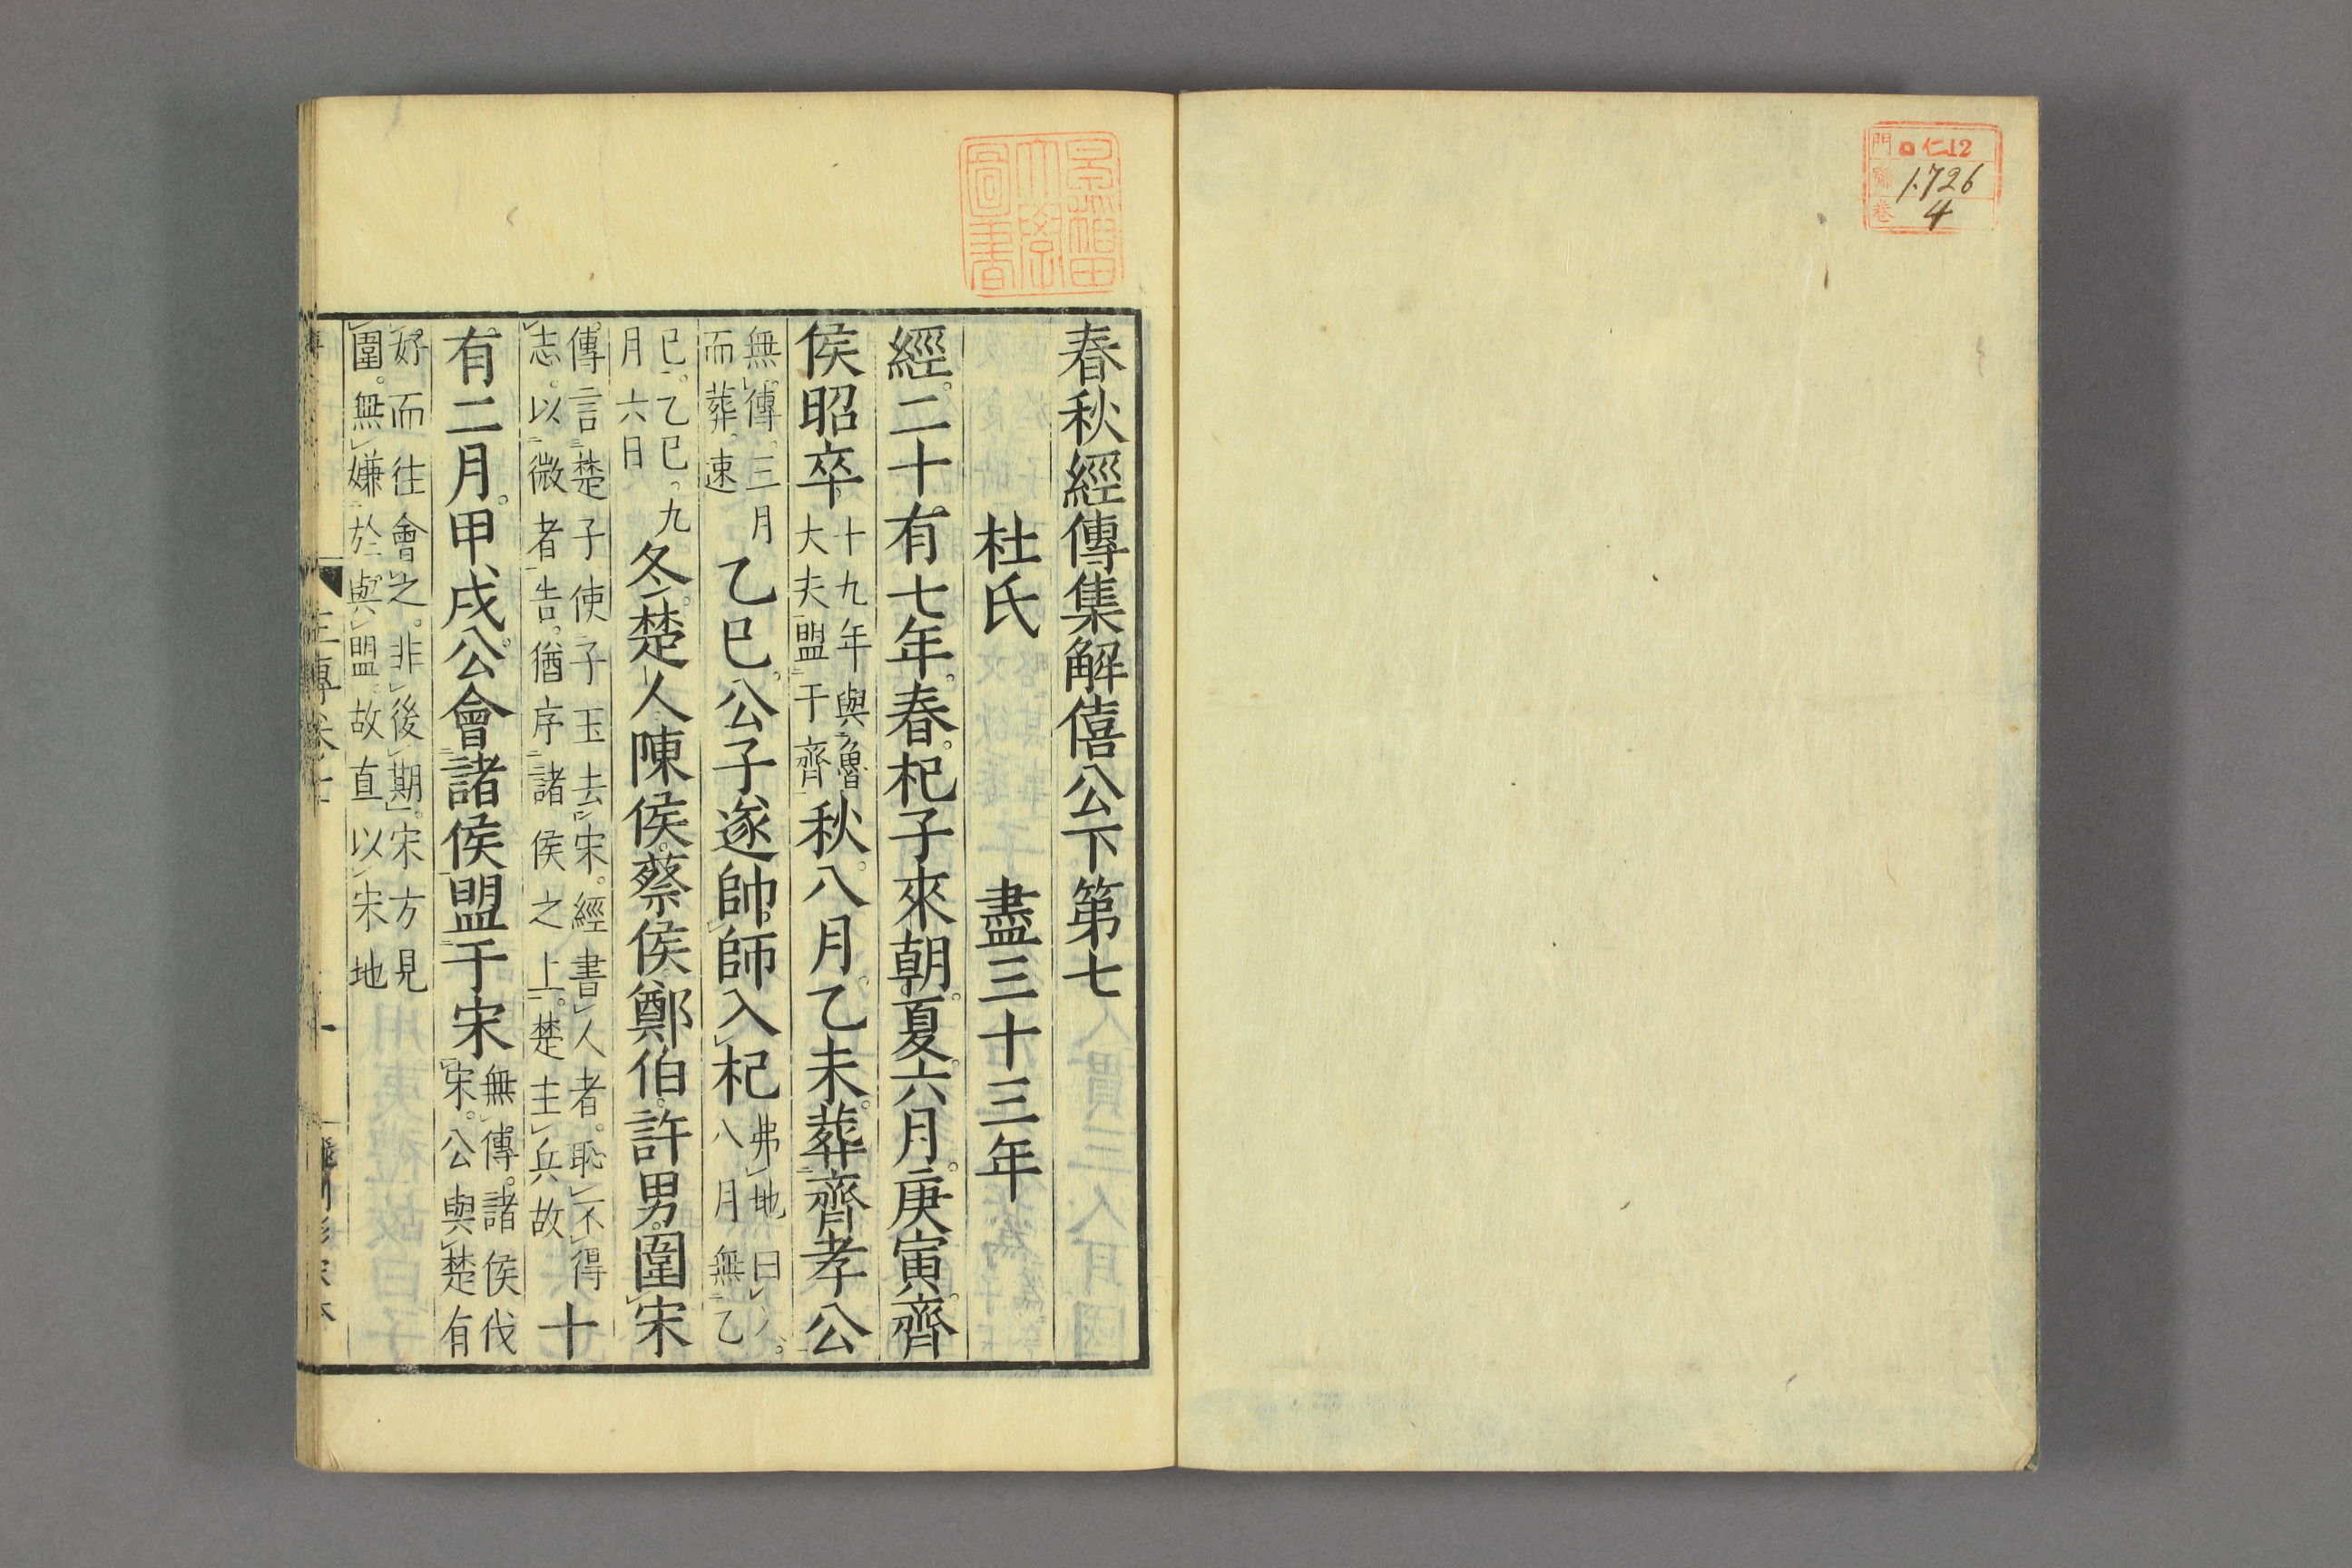 門 仁12
號 1726
卷 4
早稲田大學圖書
春秋經傳集解僖公下第七
杜氏 盡三十三年
經。二十有七年。春。杞子來朝。夏。六月。庚寅。齊
侯昭卒 十九年與魯大夫盟于齊 秋。八月。乙未。葬齊孝公
無傳。三月而葬。速 乙巳。公子遂帥師入杞 弗地曰入。八月無乙
巳。乙巳。九月六日 冬。楚人陳侯。蔡侯。鄭伯。許男。圍宋
傳言楚子使子玉去宋。經書人者。恥不得志。以微者告。猶序諸侯之上。楚主兵故 十
有二月。甲戌。公會諸侯盟于宋 無傳。諸侯伐宋。公與楚有
好而往會之。非後期。宋方見圍。無嫌於與盟。故直以宋地